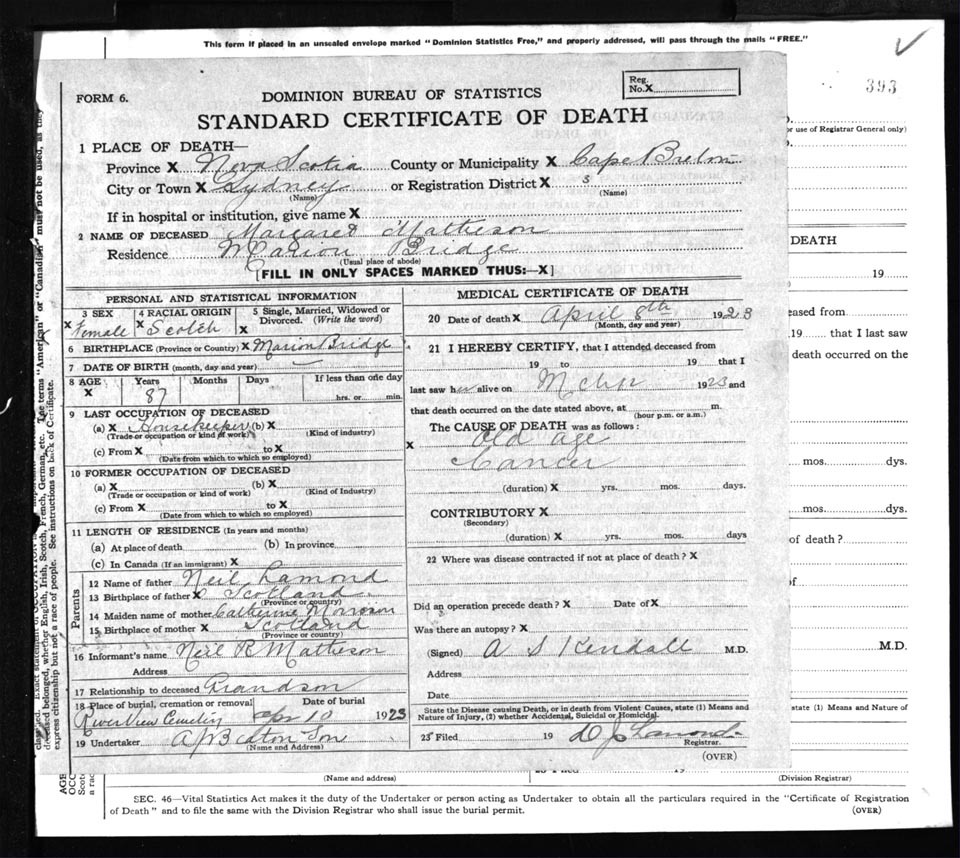 This form if placed in an unsealed envelope marked "Dominion Statistics Free," and properly addressed, will pass through the mails "FREE."
393
FORM 6.
DOMINION BUREAU OF STATISTICS
Reg. No. X
STANDARD CERTIFICATE OF DEATH
or use of Registrar General only)
1 PLACE OF DEATH—
Province X Nova Scotia County or Municipality X Cape Breton
City or Town X Sydney or Registration District X 3
(Name) (Name)
If in hospital or institution, give name X
2 NAME OF DECEASED Margaret Matheson
Residence Marion Bridge
(Usual place of abode)
[FILL IN ONLY SPACES MARKED THUS:—X]
PERSONAL AND STATISTICAL INFORMATION
3 SEX 4 RACIAL ORIGIN 5 Single, Married, Widowed or Divorced. (Write the word)
X Female X Scotch X
6 BIRTHPLACE (Province or Country) X Marion Bridge
7 DATE OF BIRTH (month, day and year)
8 AGE Years Months Days If less than one day
X 87 hrs. or min.
9 LAST OCCUPATION OF DECEASED
(a) X Housekeeper (b) X
(Trade or occupation or kind of work) (Kind of industry)
(c) From X to X
(Date from which to which so employed)
10 FORMER OCCUPATION OF DECEASED
(a) X (b) X
(Trade or occupation or kind of work) (Kind of Industry)
(c) From X to X
(Date from which to which so employed)
11 LENGTH OF RESIDENCE (In years and months)
(a) At place of death (b) In province
(c) In Canada (If an immigrant) X
Parents
12 Name of father Neil Lamond
13 Birthplace of father X Scotland
(Province or country)
14 Maiden name of mother Catherine Morrison
15 Birthplace of mother X Scotland
(Province or country)
16 Informant's name Neil R Matheson
Address
17 Relationship to deceased Grandson
18 Place of burial, cremation or removal Date of burial
RiverView Cemetery Apr 10 1923
19 Undertaker A J Beaton Son
(Name and Address)
MEDICAL CERTIFICATE OF DEATH
20 Date of death X April 8th 1923
(Month, day and year)
21 I HEREBY CERTIFY, that I attended deceased from
19 to 19 that I
last saw her alive on 1923 and
that death occurred on the date stated above, at m.
(hour p.m. or a.m.)
The CAUSE OF DEATH was as follows:
X Old age
Cancer
(duration) X yrs. mos. days.
CONTRIBUTORY X
(Secondary)
(duration) X yrs. mos. days
22 Where was disease contracted if not at place of death? X
Did an operation precede death? X Date of X
Was there an autopsy? X
(Signed) A S Kendall M.D.
Address
Date
State the Disease causing Death, or in death from Violent Causes, state (1) Means and
Nature of Injury, (2) whether Accidental, Suicidal or Homicidal.
23 Filed 19 D J Lamond
Registrar.
(OVER)
DEATH
19
ased from
19 that I last saw
death occurred on the
mos. dys.
mos. dys.
of death?
of
M.D.
state (1) Means and Nature of
(Name and address) (Division Registrar)
SEC. 46—Vital Statistics Act makes it the duty of the Undertaker or person acting as Undertaker to obtain all the particulars required in the "Certificate of Registration
of Death" and to file the same with the Division Registrar who shall issue the burial permit. (OVER)